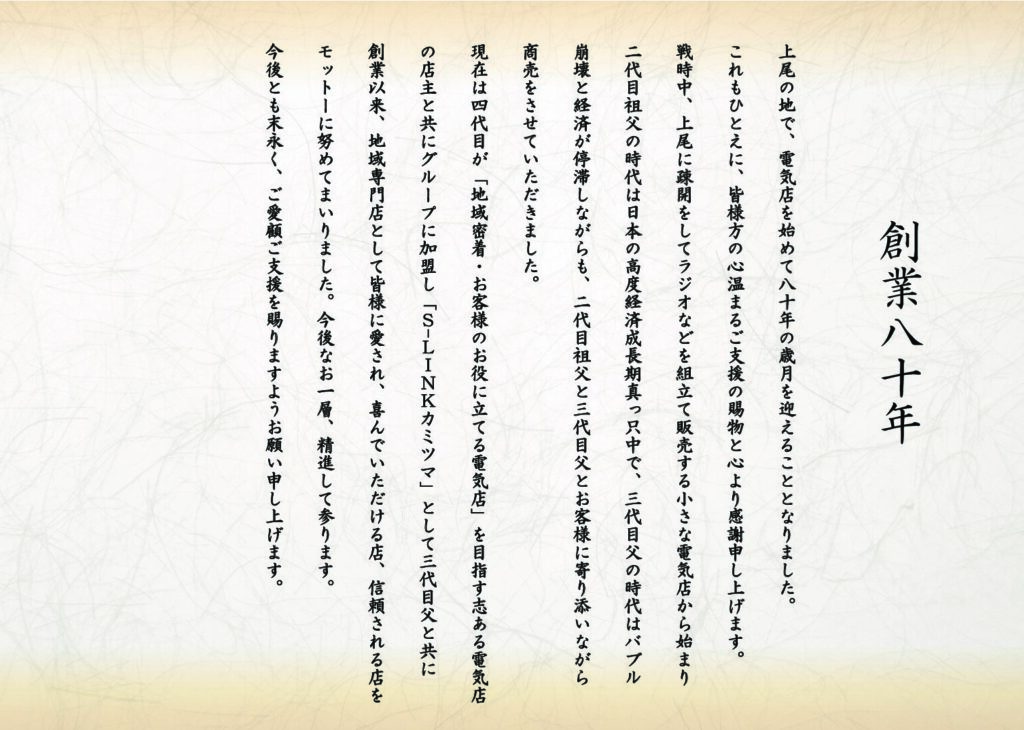 創業八十年
上尾の地で、電気店を始めて八十年の歳月を迎えることとなりました。
これもひとえに、皆様方の心温まるご支援の賜物と心より感謝申し上げます。
戦時中、上尾に疎開をしてラジオなどを組立て販売する小さな電気店から始まり
二代目祖父の時代は日本の高度経済成長期真っ只中で、三代目父の時代はバブル
崩壊と経済が停滞しながらも、二代目祖父と三代目父とお客様に寄り添いながら
商売をさせていただきました。
現在は四代目が「地域密着・お客様のお役に立てる電気店」を目指す志ある電気店
の店主と共にグループに加盟し「S-LINKカミツマ」として三代目父と共に
創業以来、地域専門店として皆様に愛され、喜んでいただける店、信頼される店を
モットーに努めてまいりました。今後なお一層、精進して参ります。
今後とも末永く、ご愛顧ご支援を賜りますようお願い申し上げます。